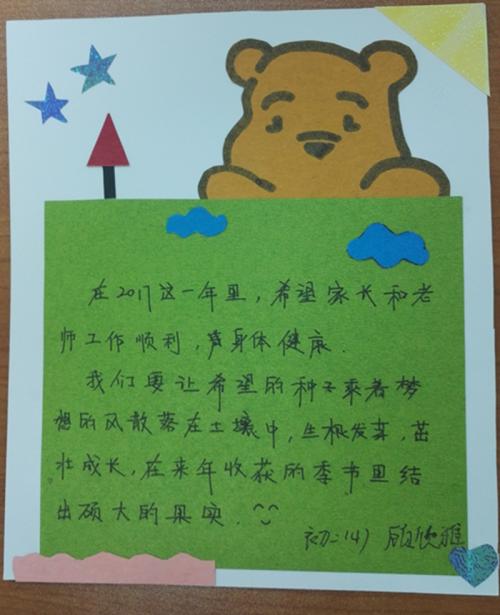 在2017这一年里，希望家长和老
师工作顺利，身体健康.
我们要让希望的种子乘着梦
想的风散落在土壤中，生根发芽，茁
壮成长，在来年收获的季节里结
出硕大的果实.
初二(4) 顾欣雅